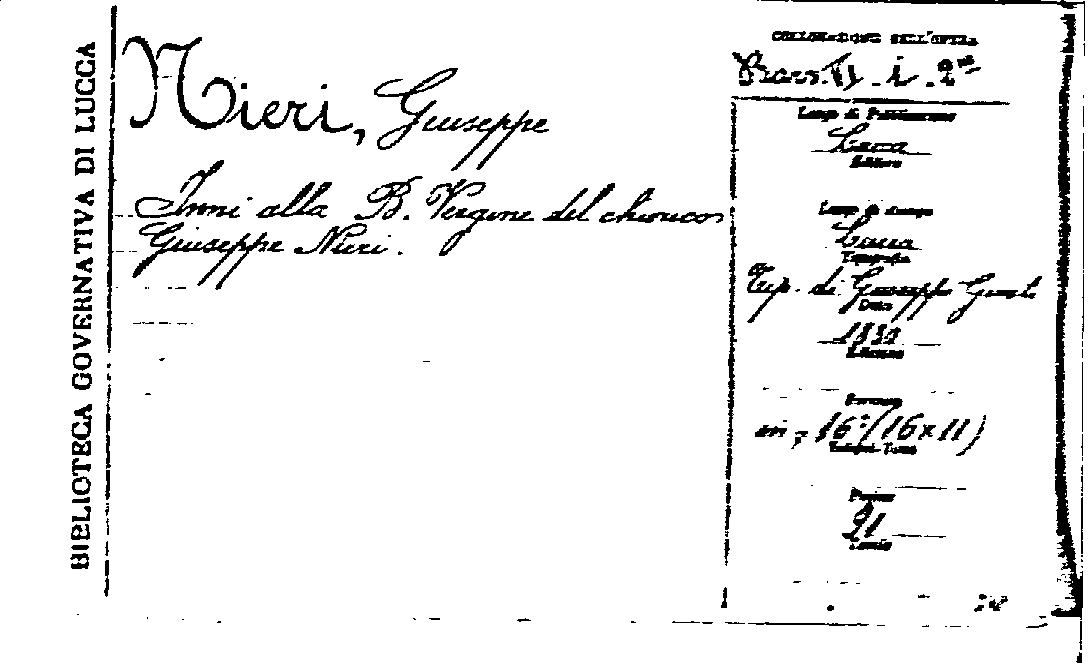 BIBLIOTECA GOVERNATIVA DI LUCCA
Nieri, Giuseppe
Inni alla B. Vergine del
Giuseppe Nieri.
COLLOCAZIONE DELL'OPERA
i. 2
Luogo di Pubblicazione
Lucca
Editore
Luogo di stampa
Lucca
Tipografia
Tip. di Giuseppe Giusti
Data
Edizione
Formato
in, 16° (16x11)
Pagine
21